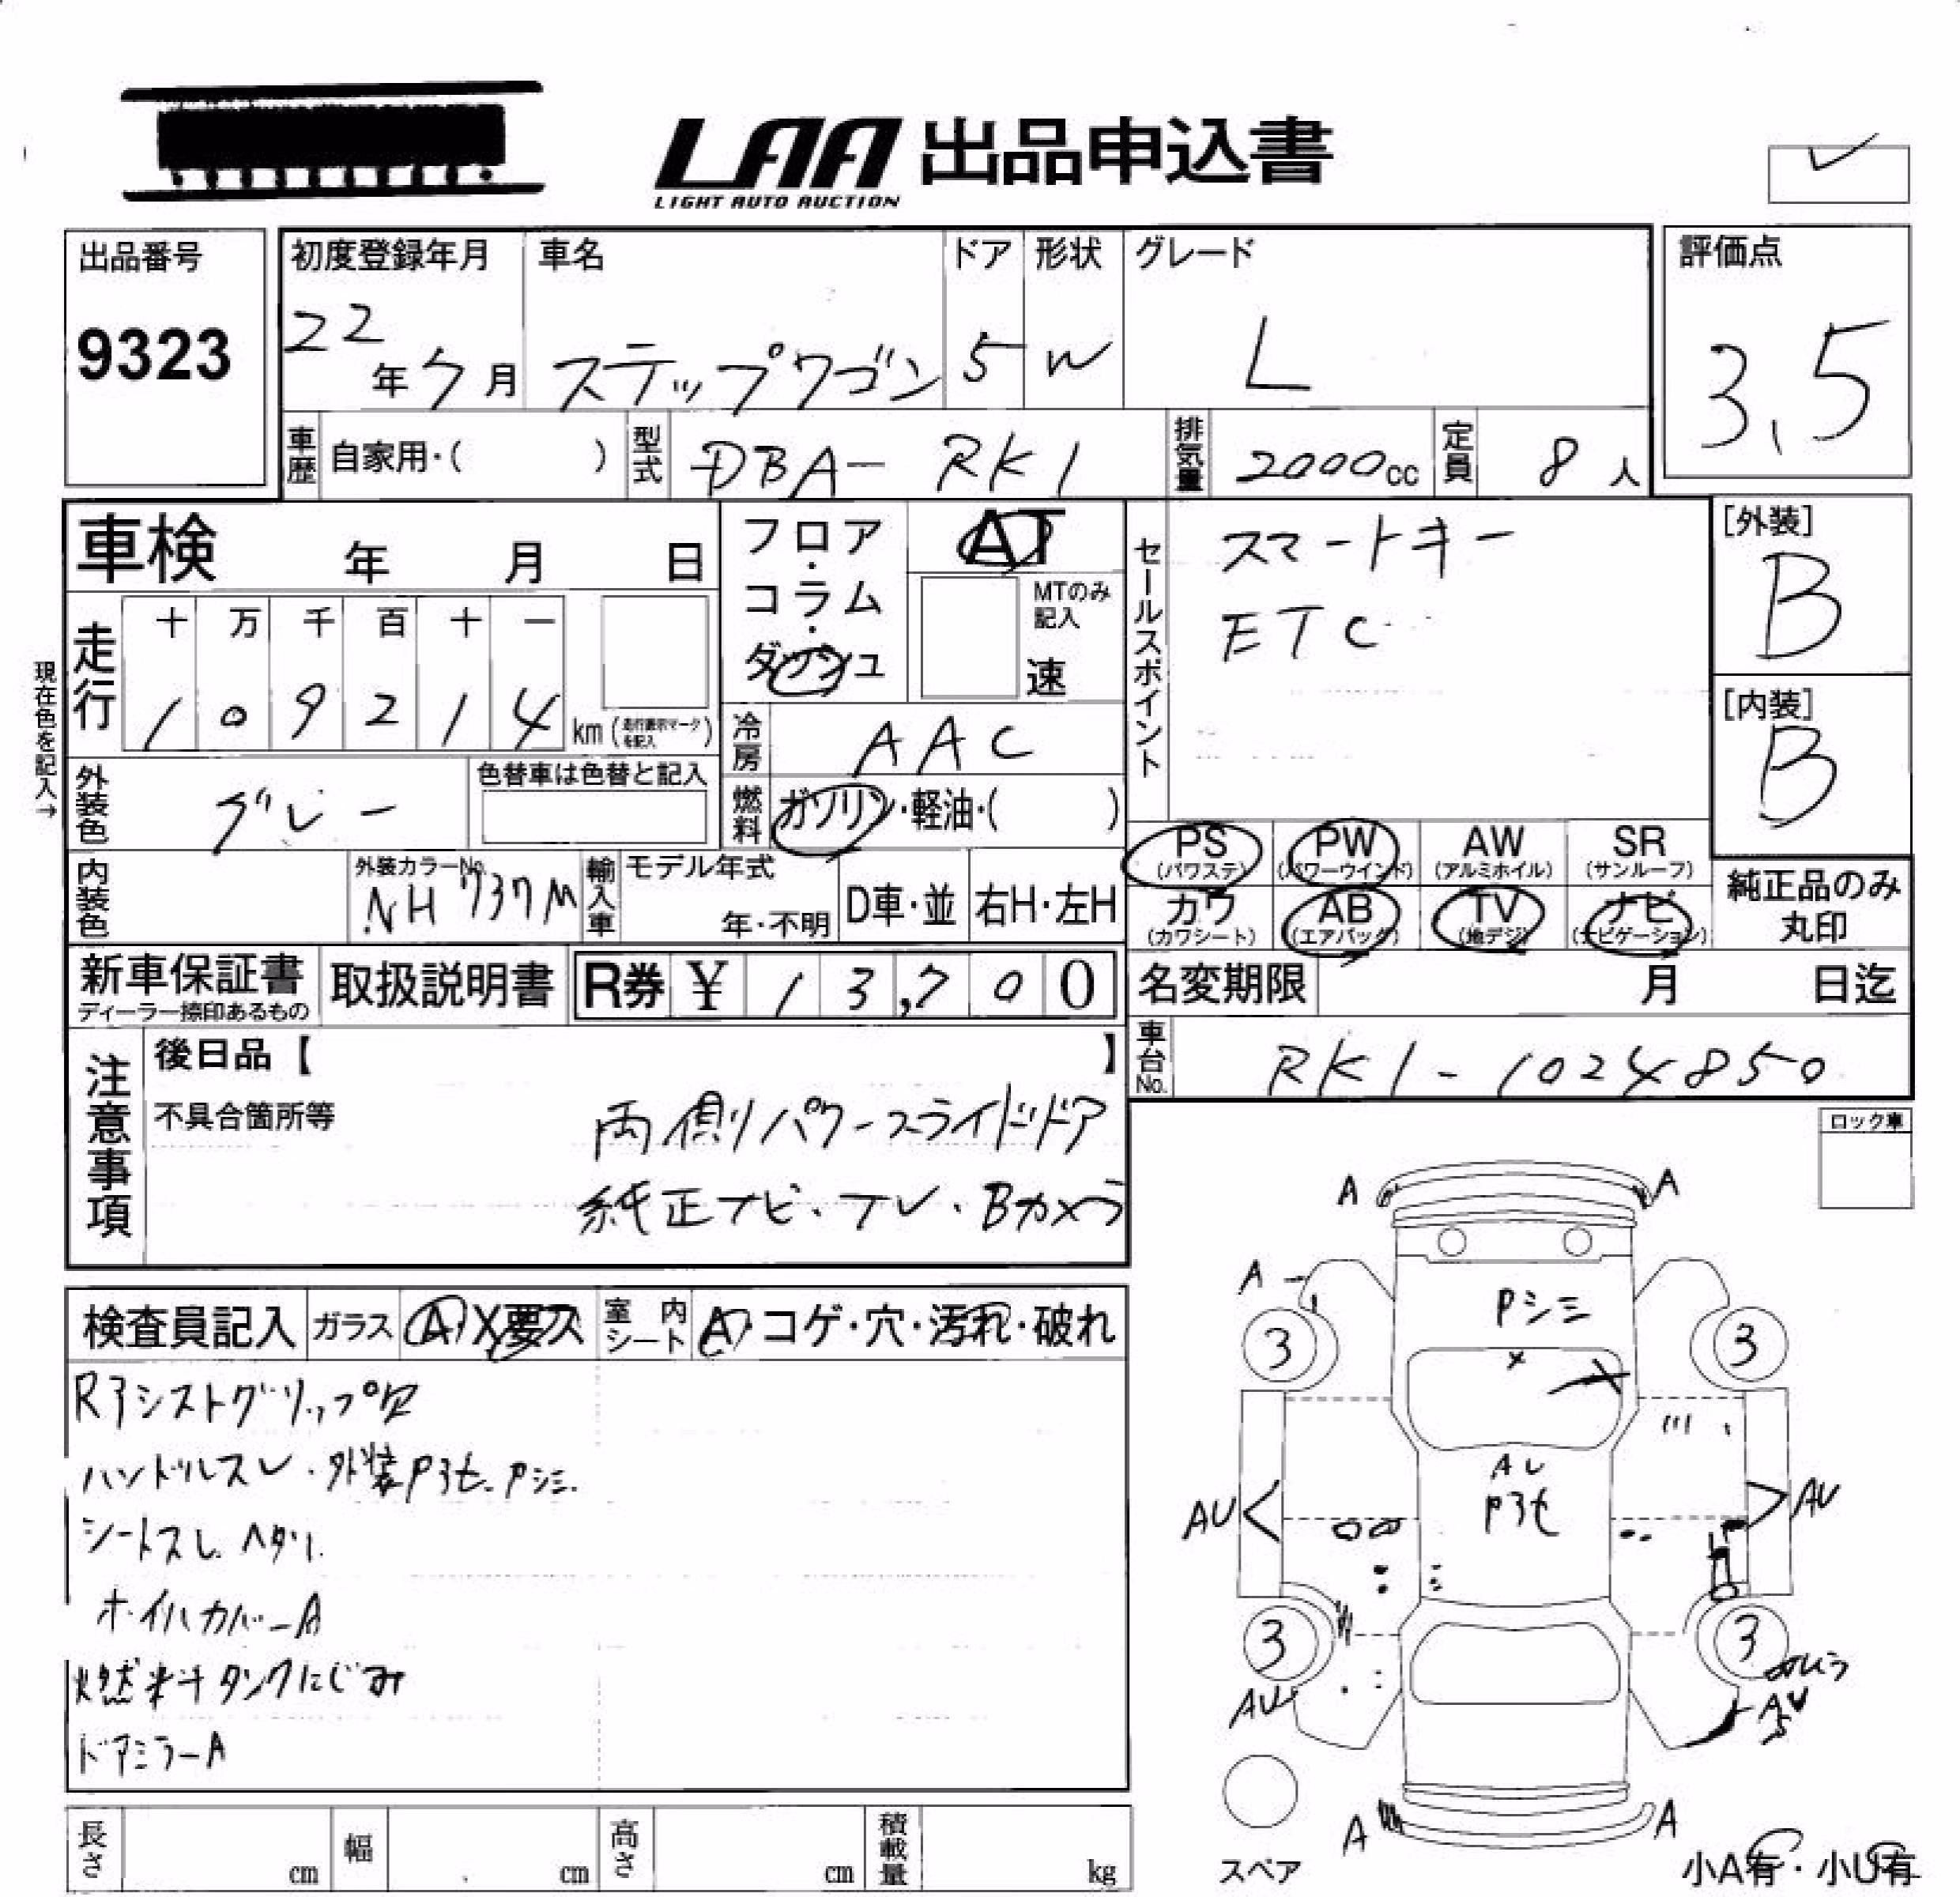 LAA 出品申込書
LIGHT AUTO AUCTION
出品番号
9323
初度登録年月 車名 ドア 形状 グレード 評価点
22年7月 ステップワゴン 5 W L 3.5
車歴 自家用・( ) 型式 DBA-RK1 排気量 2000cc 定員 8人
車検 年 月 日
フロア・コラム・ダッシュ
AT
MTのみ記入
速
セールスポイント
スマートキー
ETC
[外装]
B
[内装]
B
現在色を記入→
走行 十 万 千 百 十 一
1 0 9 2 1 4 km (走行表示マークを記入)
冷房 AAC
外装色 グレー
色替車は色替と記入
燃料 ガソリン・軽油・( )
PS (パワステ) PW (パワーウインド) AW (アルミホイル) SR (サンルーフ)
カワ (カワシート) AB (エアバック) TV (地デジ) ナビ (ナビゲーション)
純正品のみ丸印
内装色 外装カラーNo. NH737M
輸入車 モデル年式 年・不明 D車・並 右H・左H
新車保証書 ディーラー捺印あるもの 取扱説明書 R券 ¥ 13,700
名変期限 月 日迄
車台No. RK1-1024850
注意事項
後日品【 】
不具合箇所等 両側パワースライドドア
純正ナビ・TV・Bカメラ
ロック車
検査員記入 ガラス A X要ス 室内シート A・コゲ・穴・汚れ・破れ
Rアシストグリップ欠
ハンドルスレ・外装Pヨセ・Pシミ
シートスレ ヘタリ
ホイルカバーA
燃料タンクにじみ
ドアミラーA
A A
A
Pシミ
3 3
X
AU
Pヨセ
AU AU
3 3
AU AU
A A
スペア
小A有・小U有
長さ cm 幅 cm 高さ cm 積載量 kg